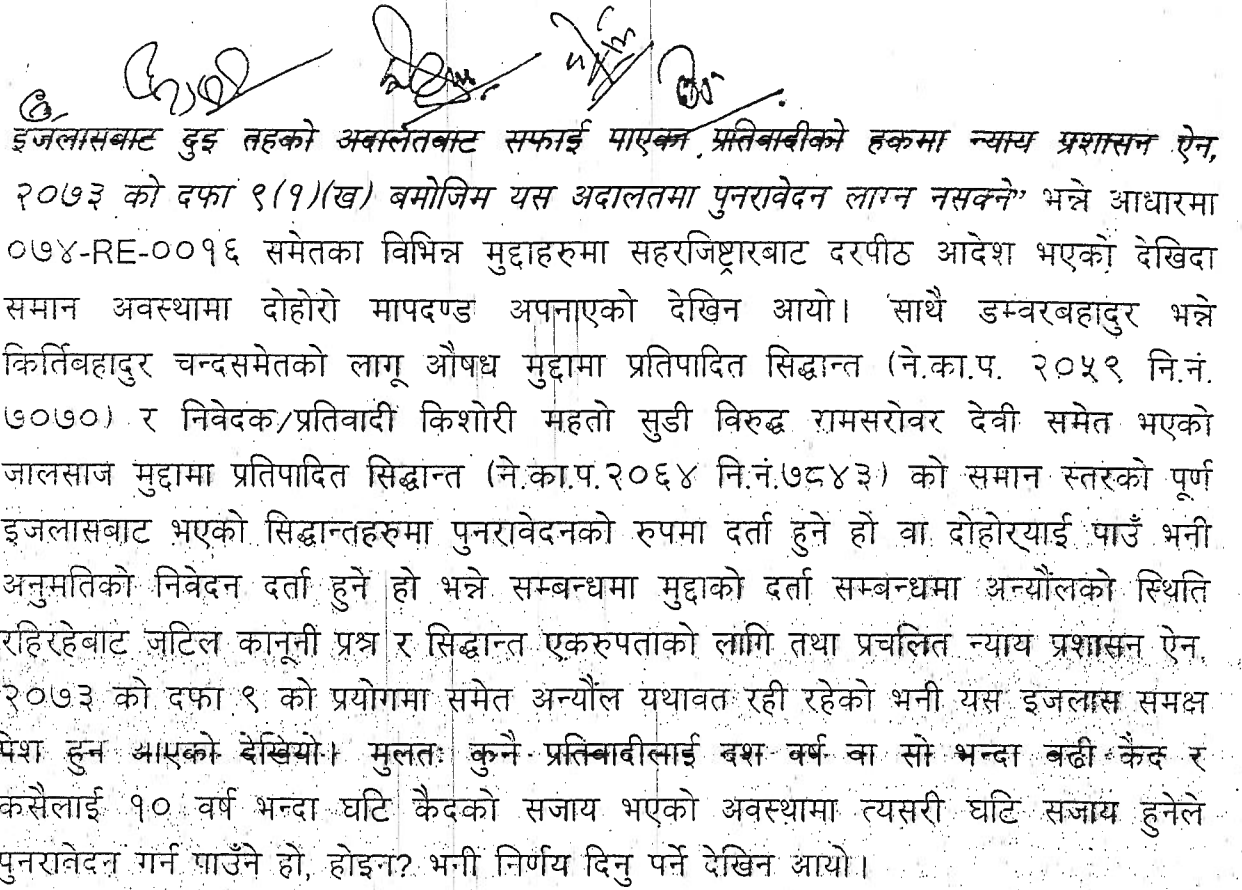 इजलासबाट दुइ तहको अदालतबाट सफाई पाएका प्रतिवादीको हकमा न्याय प्रशासन ऐन,
२०७३ को दफा ९(१)(ख) बमोजिम यस अदालतमा पुनरावेदन लाग्न नसक्ने” भन्ने आधारमा
०७४-RE-००१६ समेतका विभिन्न मुद्दाहरुमा सहरजिष्ट्रारबाट दरपीठ आदेश भएको देखिदा
समान अवस्थामा दोहोरो मापदण्ड अपनाएको देखिन आयो। साथै डम्वरबहादुर भन्ने
किर्तिबहादुर चन्दसमेतको लागू औषध मुद्दामा प्रतिपादित सिद्धान्त (ने.का.प. २०५९ नि.नं.
७०७०) र निवेदक/प्रतिवादी किशोरी महतो सुडी विरुद्ध रामसरोवर देवी समेत भएको
जालसाज मुद्दामा प्रतिपादित सिद्धान्त (ने.का.प.२०६४ नि.नं.७८४३) को समान स्तरको पूर्ण
इजलासबाट भएको सिद्धान्तहरुमा पुनरावेदनको रुपमा दर्ता हुने हो वा दोहोर्‍याई पाउँ भनी
अनुमतिको निवेदन दर्ता हुने हो भन्ने सम्बन्धमा मुद्दाको दर्ता सम्बन्धमा अन्यौलको स्थिति
रहिरहेबाट जटिल कानूनी प्रश्न र सिद्धान्त एकरुपताको लागि तथा प्रचलित न्याय प्रशासन ऐन,
२०७३ को दफा ९ को प्रयोगमा समेत अन्यौल यथावत रही रहेको भनी यस इजलास समक्ष
पेश हुन आएको देखियो। मुलतः कुनै प्रतिवादीलाई दश वर्ष वा सो भन्दा बढी कैद र
कसैलाई १० वर्ष भन्दा घटि कैदको सजाय भएको अवस्थामा त्यसरी घटि सजाय हुनेले
पुनरावेदन गर्न पाउँने हो, होइन? भनी निर्णय दिनु पर्ने देखिन आयो।